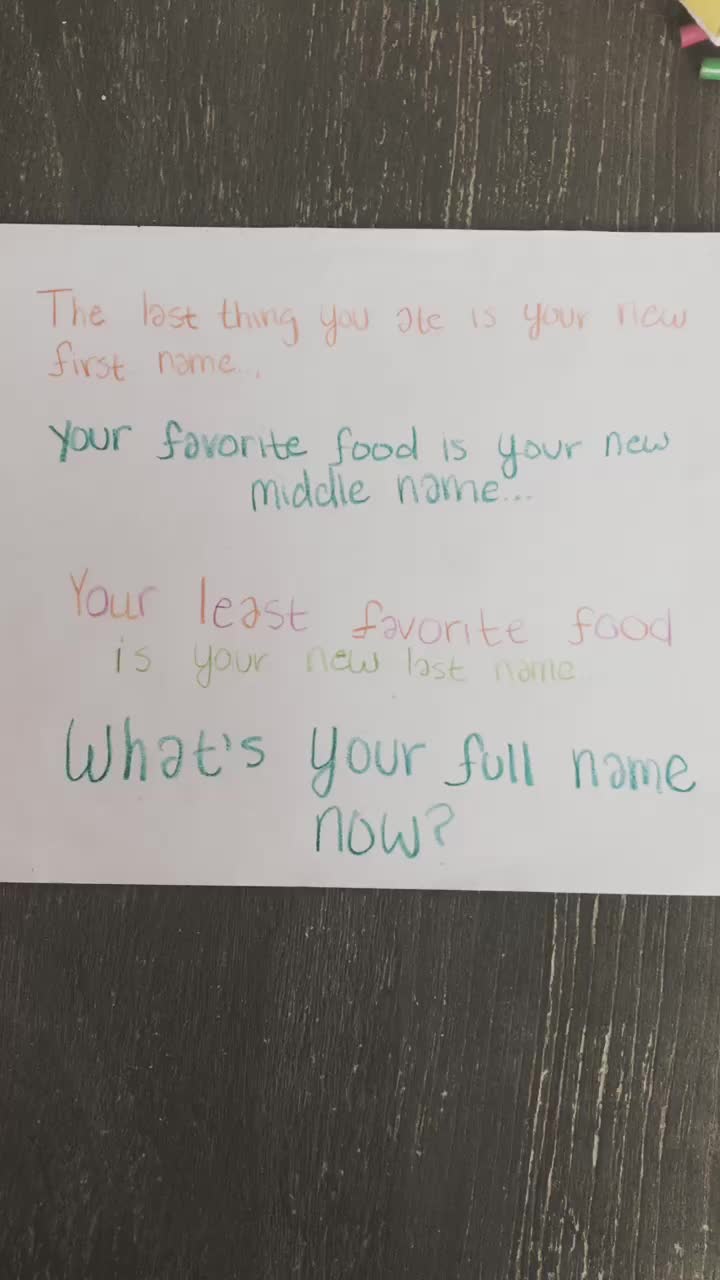 The last thing you ate is your new
first name...
Your favorite food is your new
middle name...
Your least favorite food
is your new last name...
What's your full name
now?